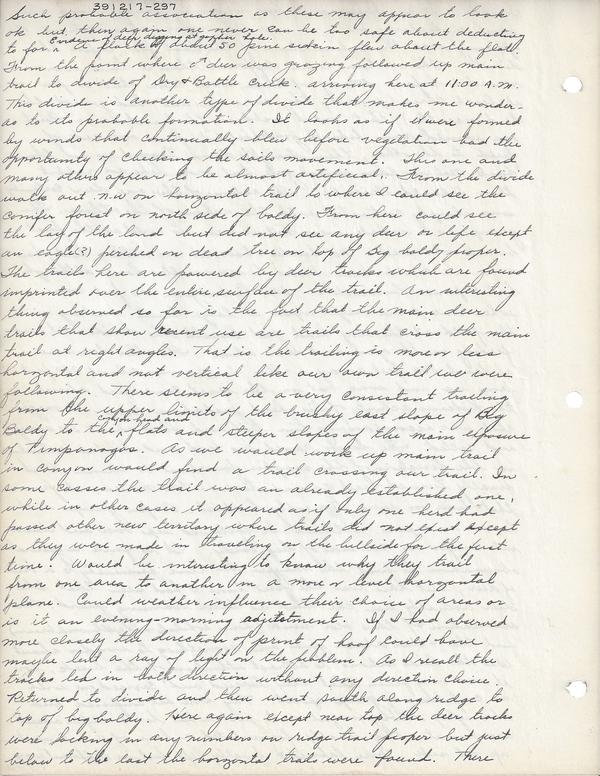 391217-297
Such probable association as these may appear to look
ok but then again one never can be too safe about deducting
Evidence of deer digging at gopher hole.
to far. A flock of about 50 pine siskin flew about the flat.
From the point where ♂ deer was grazing followed up main
trail to divide of Dry & Battle Creek. arriving here at 11:00 A.M.
This divide is another type of divide that makes me wonder-
as to its probable formation. It looks as if it were formed
by winds that continually blew before vegetation had the
opportunity of checking the soils movement. This one and
many others appear to be almost artificial. From the divide
walk out N.W on horizontal trail to where I could see the
conifer forest on north side of baldy. From here could see
the lay of the land but did not see any deer or life except
an eagle(?) perched on dead tree on top of Big baldy proper.
The trails here are powered by deer tracks which are found
imprinted over the entire surface of the trail. An interesting
thing observed so far is the fact that the main deer
trails that show recent use are trails that cross the main
trail at right angles. That is the trailing is more or less
horizontal and not vertical like our own trail we were
following. There seems to be a very consistent trailing
from the upper limits of the brushy east slope of Big
canyon head and
Baldy to the flats and steeper slopes of the main exposure
of Timpanogos. As we would work up main trail
in canyon would find a trail crossing our trail. In
some casses the trail was an already established one,
while in other cases it appeared as if only one herd had
passed other new territory where trails did not exist except
as they were made in traveling on the hillside for the first
time. Would be interesting to know why they trail
from one area to another in a more or level horizontal
plane. Could weather influence their choice of areas or
is it an evening-morning adjustment. If I had observed
more closely the direction of print of hoof could have
maybe lent a ray of light on the problem. As I recall the
tracks led in both direction without any direction choice.
Returned to divide and then went south along ridge to
top of big baldy. Here again except near top the deer tracks
were lacking in any numbers on ridge trail proper but just
below to the east the horizontal trails were found. There